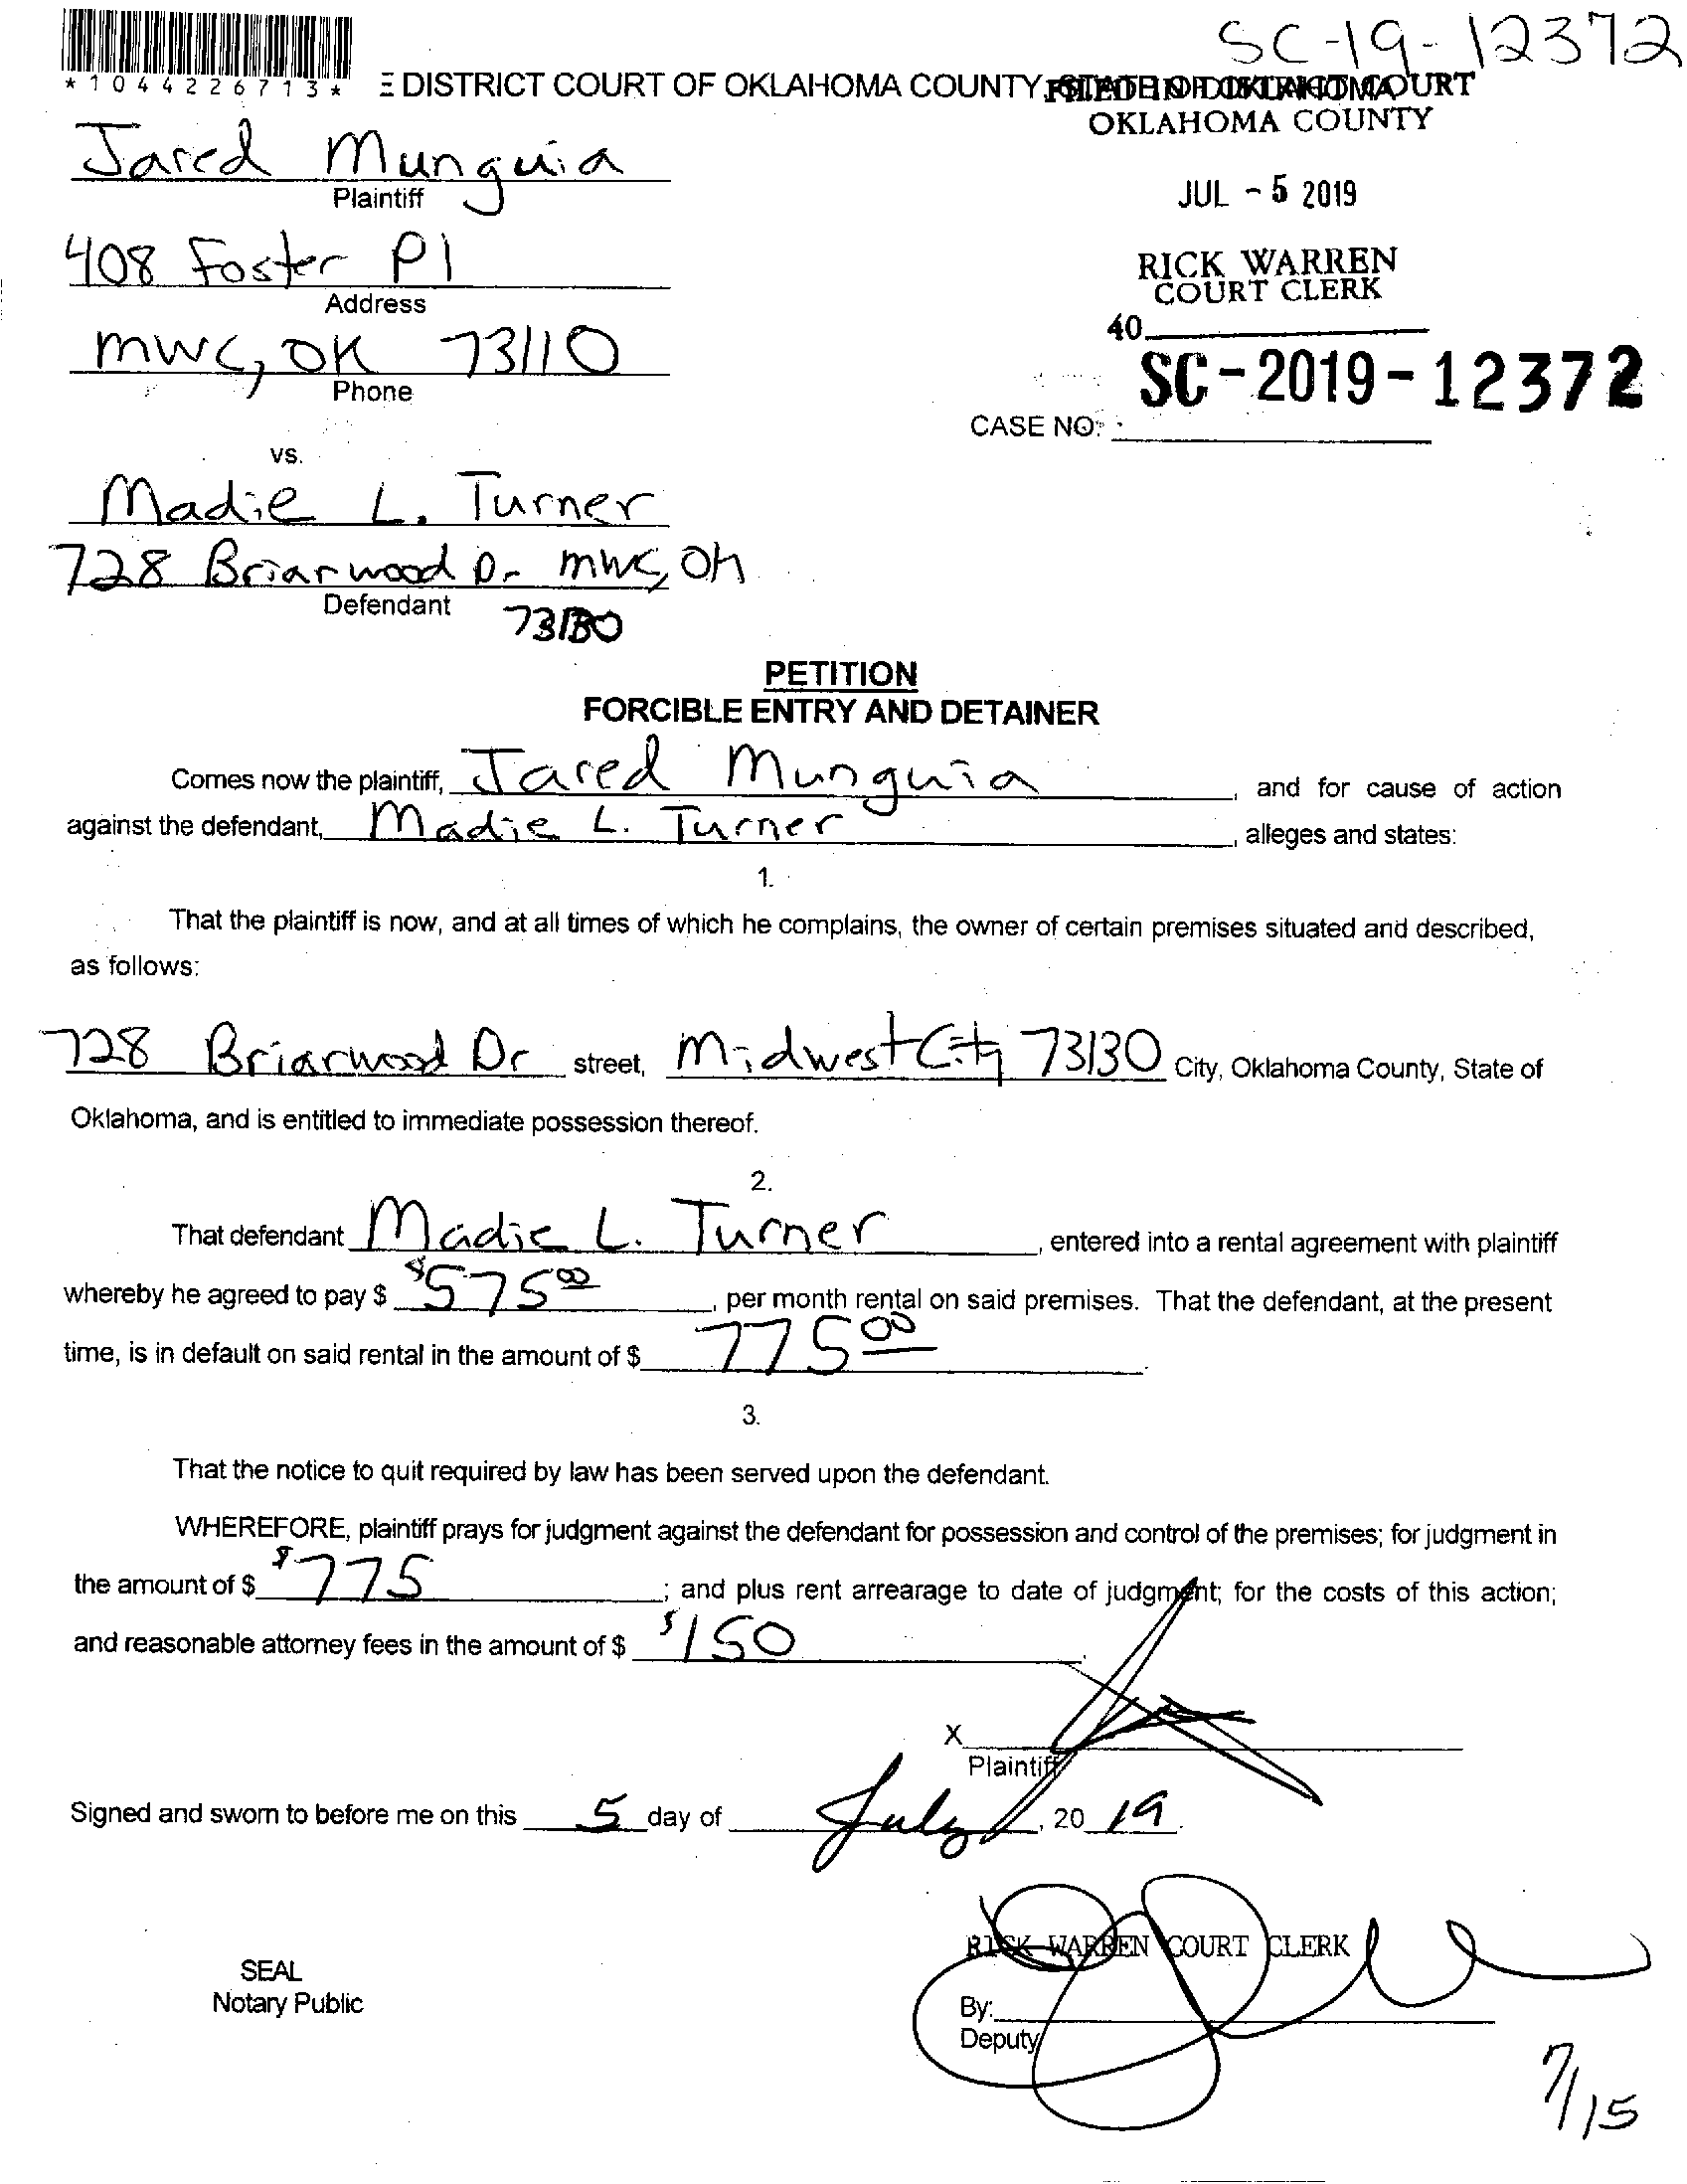 SC-19-12372
*1044226713*
DISTRICT COURT OF OKLAHOMA COUNTY, STATE OF OKLAHOMA
FILED IN DISTRICT COURT
OKLAHOMA COUNTY
Jared Munguia
Plaintiff
JUL - 5 2019
408 Foster Pl
Address
RICK WARREN
COURT CLERK
40
MWC, OK 73110
Phone
SC-2019-12372
CASE NO:
vs.
Madie L. Turner
728 Briarwood Dr MWC, OK
Defendant
73130
PETITION
FORCIBLE ENTRY AND DETAINER
Comes now the plaintiff, Jared Munguia, and for cause of action
against the defendant, Madie L. Turner, alleges and states:
1.
That the plaintiff is now, and at all times of which he complains, the owner of certain premises situated and described,
as follows:
728 Briarwood Dr street, Midwest City 73130 City, Oklahoma County, State of
Oklahoma, and is entitled to immediate possession thereof.
2.
That defendant Madie L. Turner, entered into a rental agreement with plaintiff
whereby he agreed to pay $ $575 00, per month rental on said premises. That the defendant, at the present
time, is in default on said rental in the amount of $ 775 00.
3.
That the notice to quit required by law has been served upon the defendant.
WHEREFORE, plaintiff prays for judgment against the defendant for possession and control of the premises; for judgment in
the amount of $ $775; and plus rent arrearage to date of judgment; for the costs of this action;
and reasonable attorney fees in the amount of $ $150.
X
Plaintiff
Signed and sworn to before me on this 5 day of July, 20 19.
RICK WARREN COURT CLERK
SEAL
Notary Public
By:
Deputy
7/15